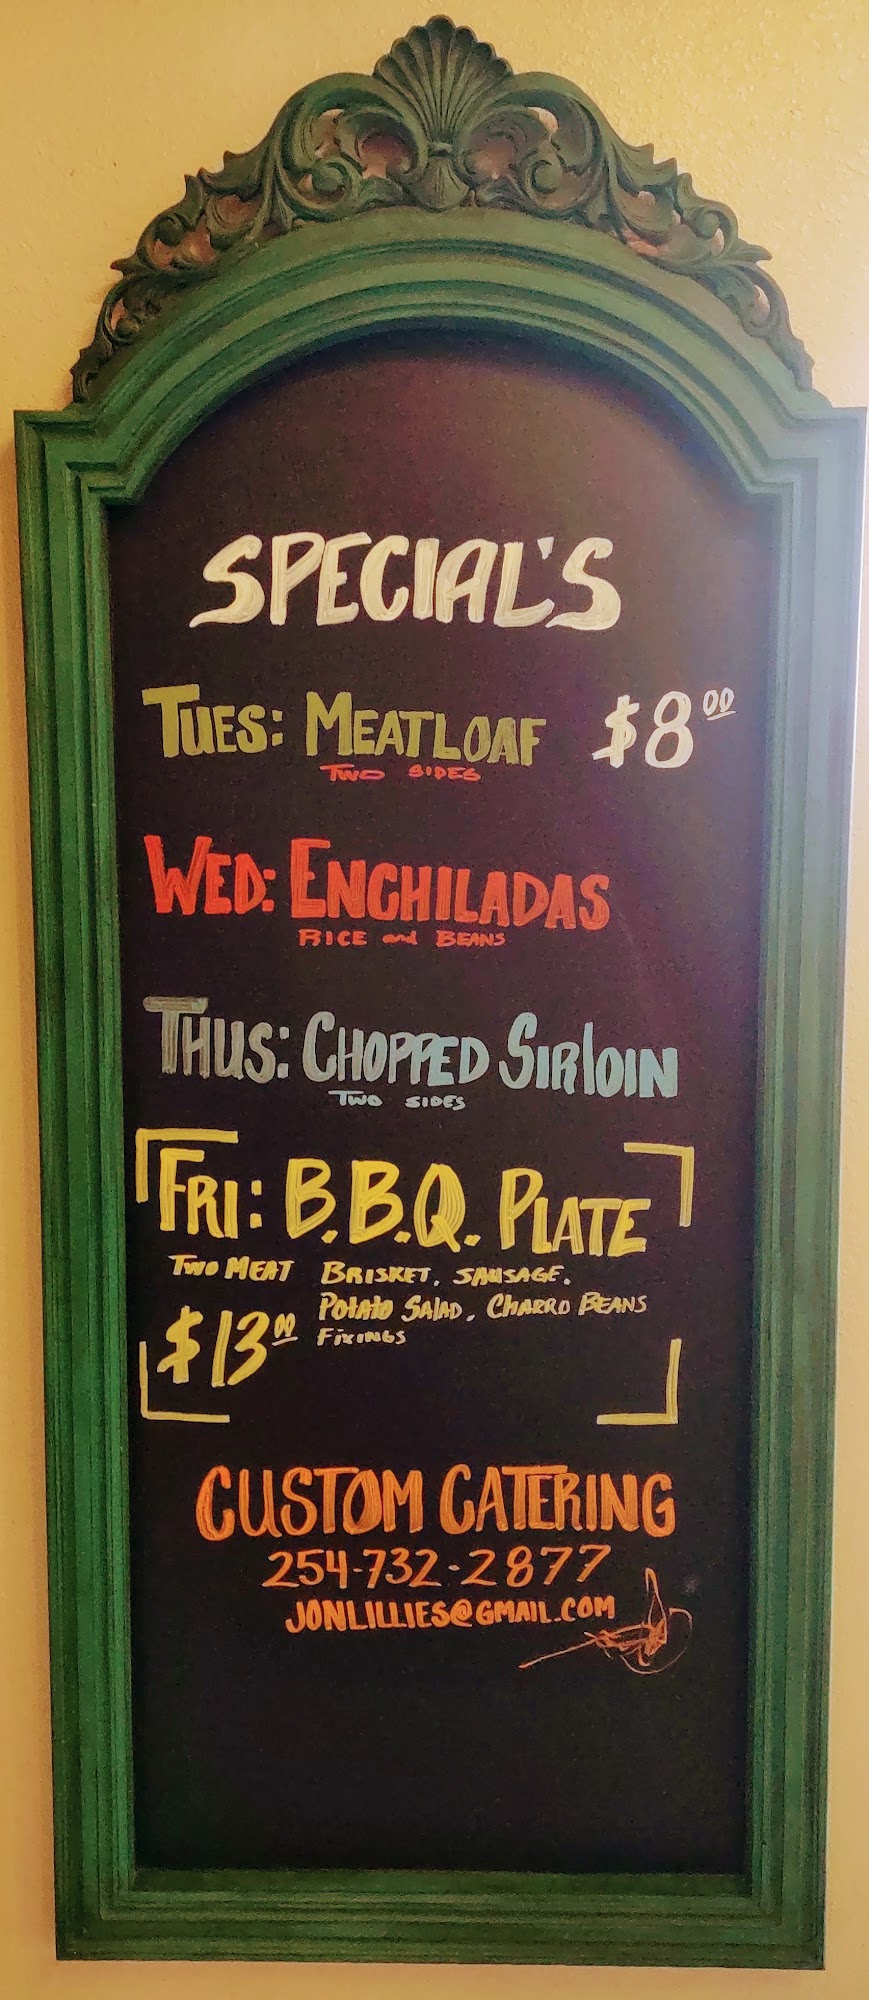 SPECIAL'S
TUES: MEATLOAF $8.00
TWO SIDES
WED: ENCHILADAS
RICE and BEANS
THUS: CHOPPED SIRlOIN
TWO SIDES
FRI: B.B.Q. PLATE
TWO MEAT BRISKET, SAUSAGE,
POtAtO SAlAD, CHARRO BEANS
FIXINGS
$13.00
CUSTOM CATERING
254-732-2877
JONLILLIES@GMAIL.COM